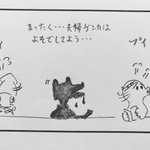 まったく・・・夫婦ゲンカは
よそでしてよう・・・
プイ